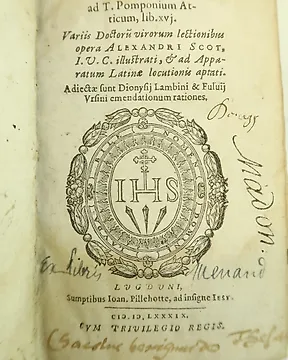 ad T. Pomponium At-
ticum, lib. xvj.
Variis Doctorũ virorum lectionibus
opera ALEXANDRI SCOT,
I. V. C. illustrati, & ad Appa-
ratum Latinæ locutionis aptati.
Adiectæ sunt Dionysij Lambini & Fuluij
Vrsini emendationum rationes.
IHS
Ex Libris Menand
LVGDVNI,
Sumptibus Ioan. Pillehotte, ad insigne IESV.
CIↃ. IↃ. LXXXIX.
CVM PRIVILEGIO REGIS.